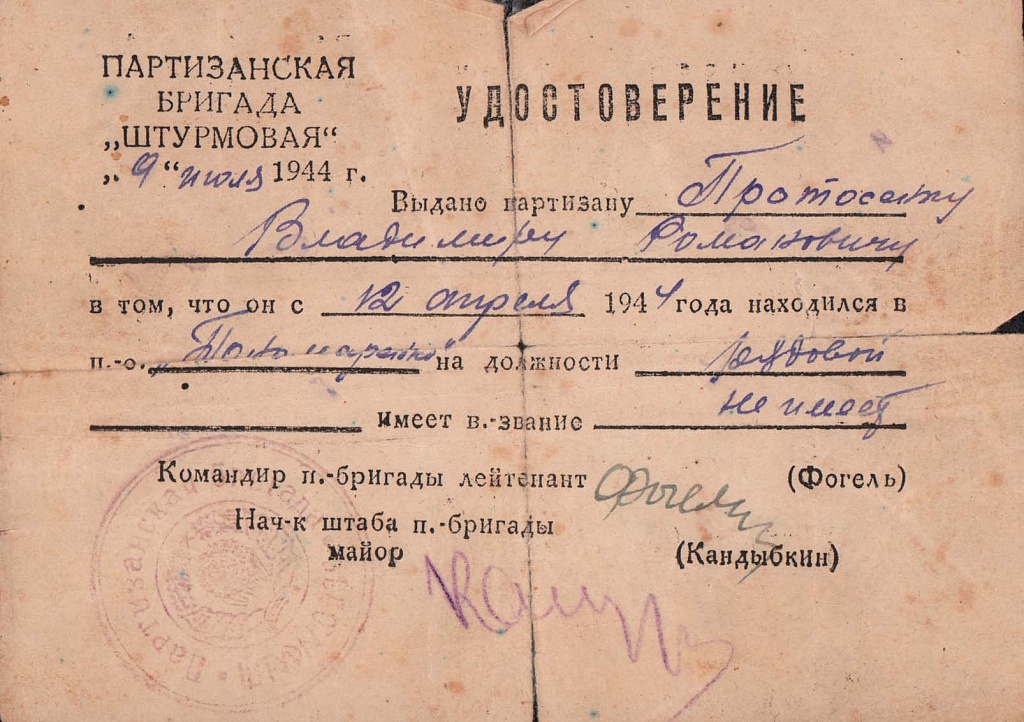 ПАРТИЗАНСКАЯ
БРИГАДА
„ШТУРМОВАЯ“
„9“ июля 1944 г.
УДОСТОВЕРЕНИЕ
Выдано партизану Протосеку
Владимиру Романовичу
в том, что он с 12 апреля 1944 года находился в
п.-о. „Пономаренко“ на должности рядовой
Имеет в.-звание не имеет
Командир п.-бригады лейтенант Фогель (Фогель)
Нач-к штаба п.-бригады
майор (Кандыбкин)
Партизанская